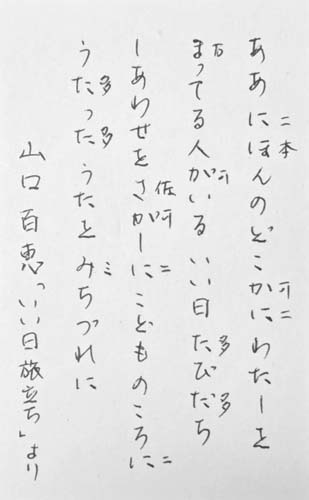 ああにほんのどこかにわたしを
ニ本 ニ
まってる人がいるいい日たびだち
万 多 多
しあわせをさがしにこどものころに
佐 ニ ニ
うたったうたをみちづれに
多 多 ミ
山口百恵「いい日旅立ち」より